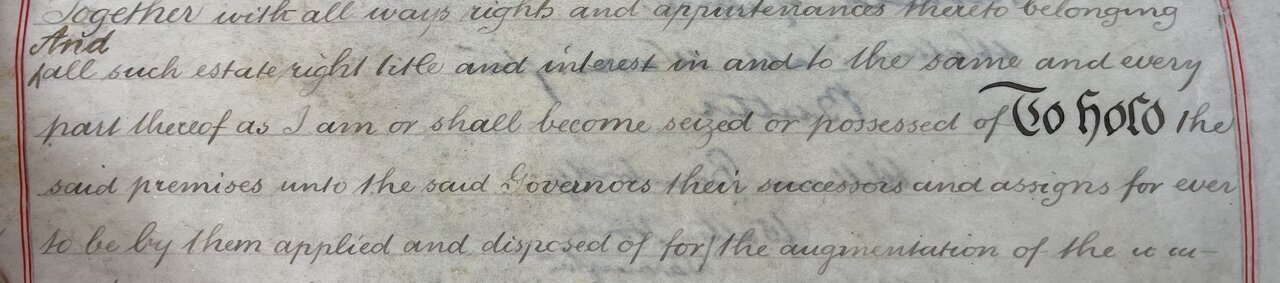 Together with all ways rights and appurtenances thereto belonging
And
all such estate right title and interest in and to the same and every
part thereof as I am or shall become seized or possessed of To hold the
said premises unto the said Governors their successors and assigns for ever
to be by them applied and disposed of for the augmentation of the